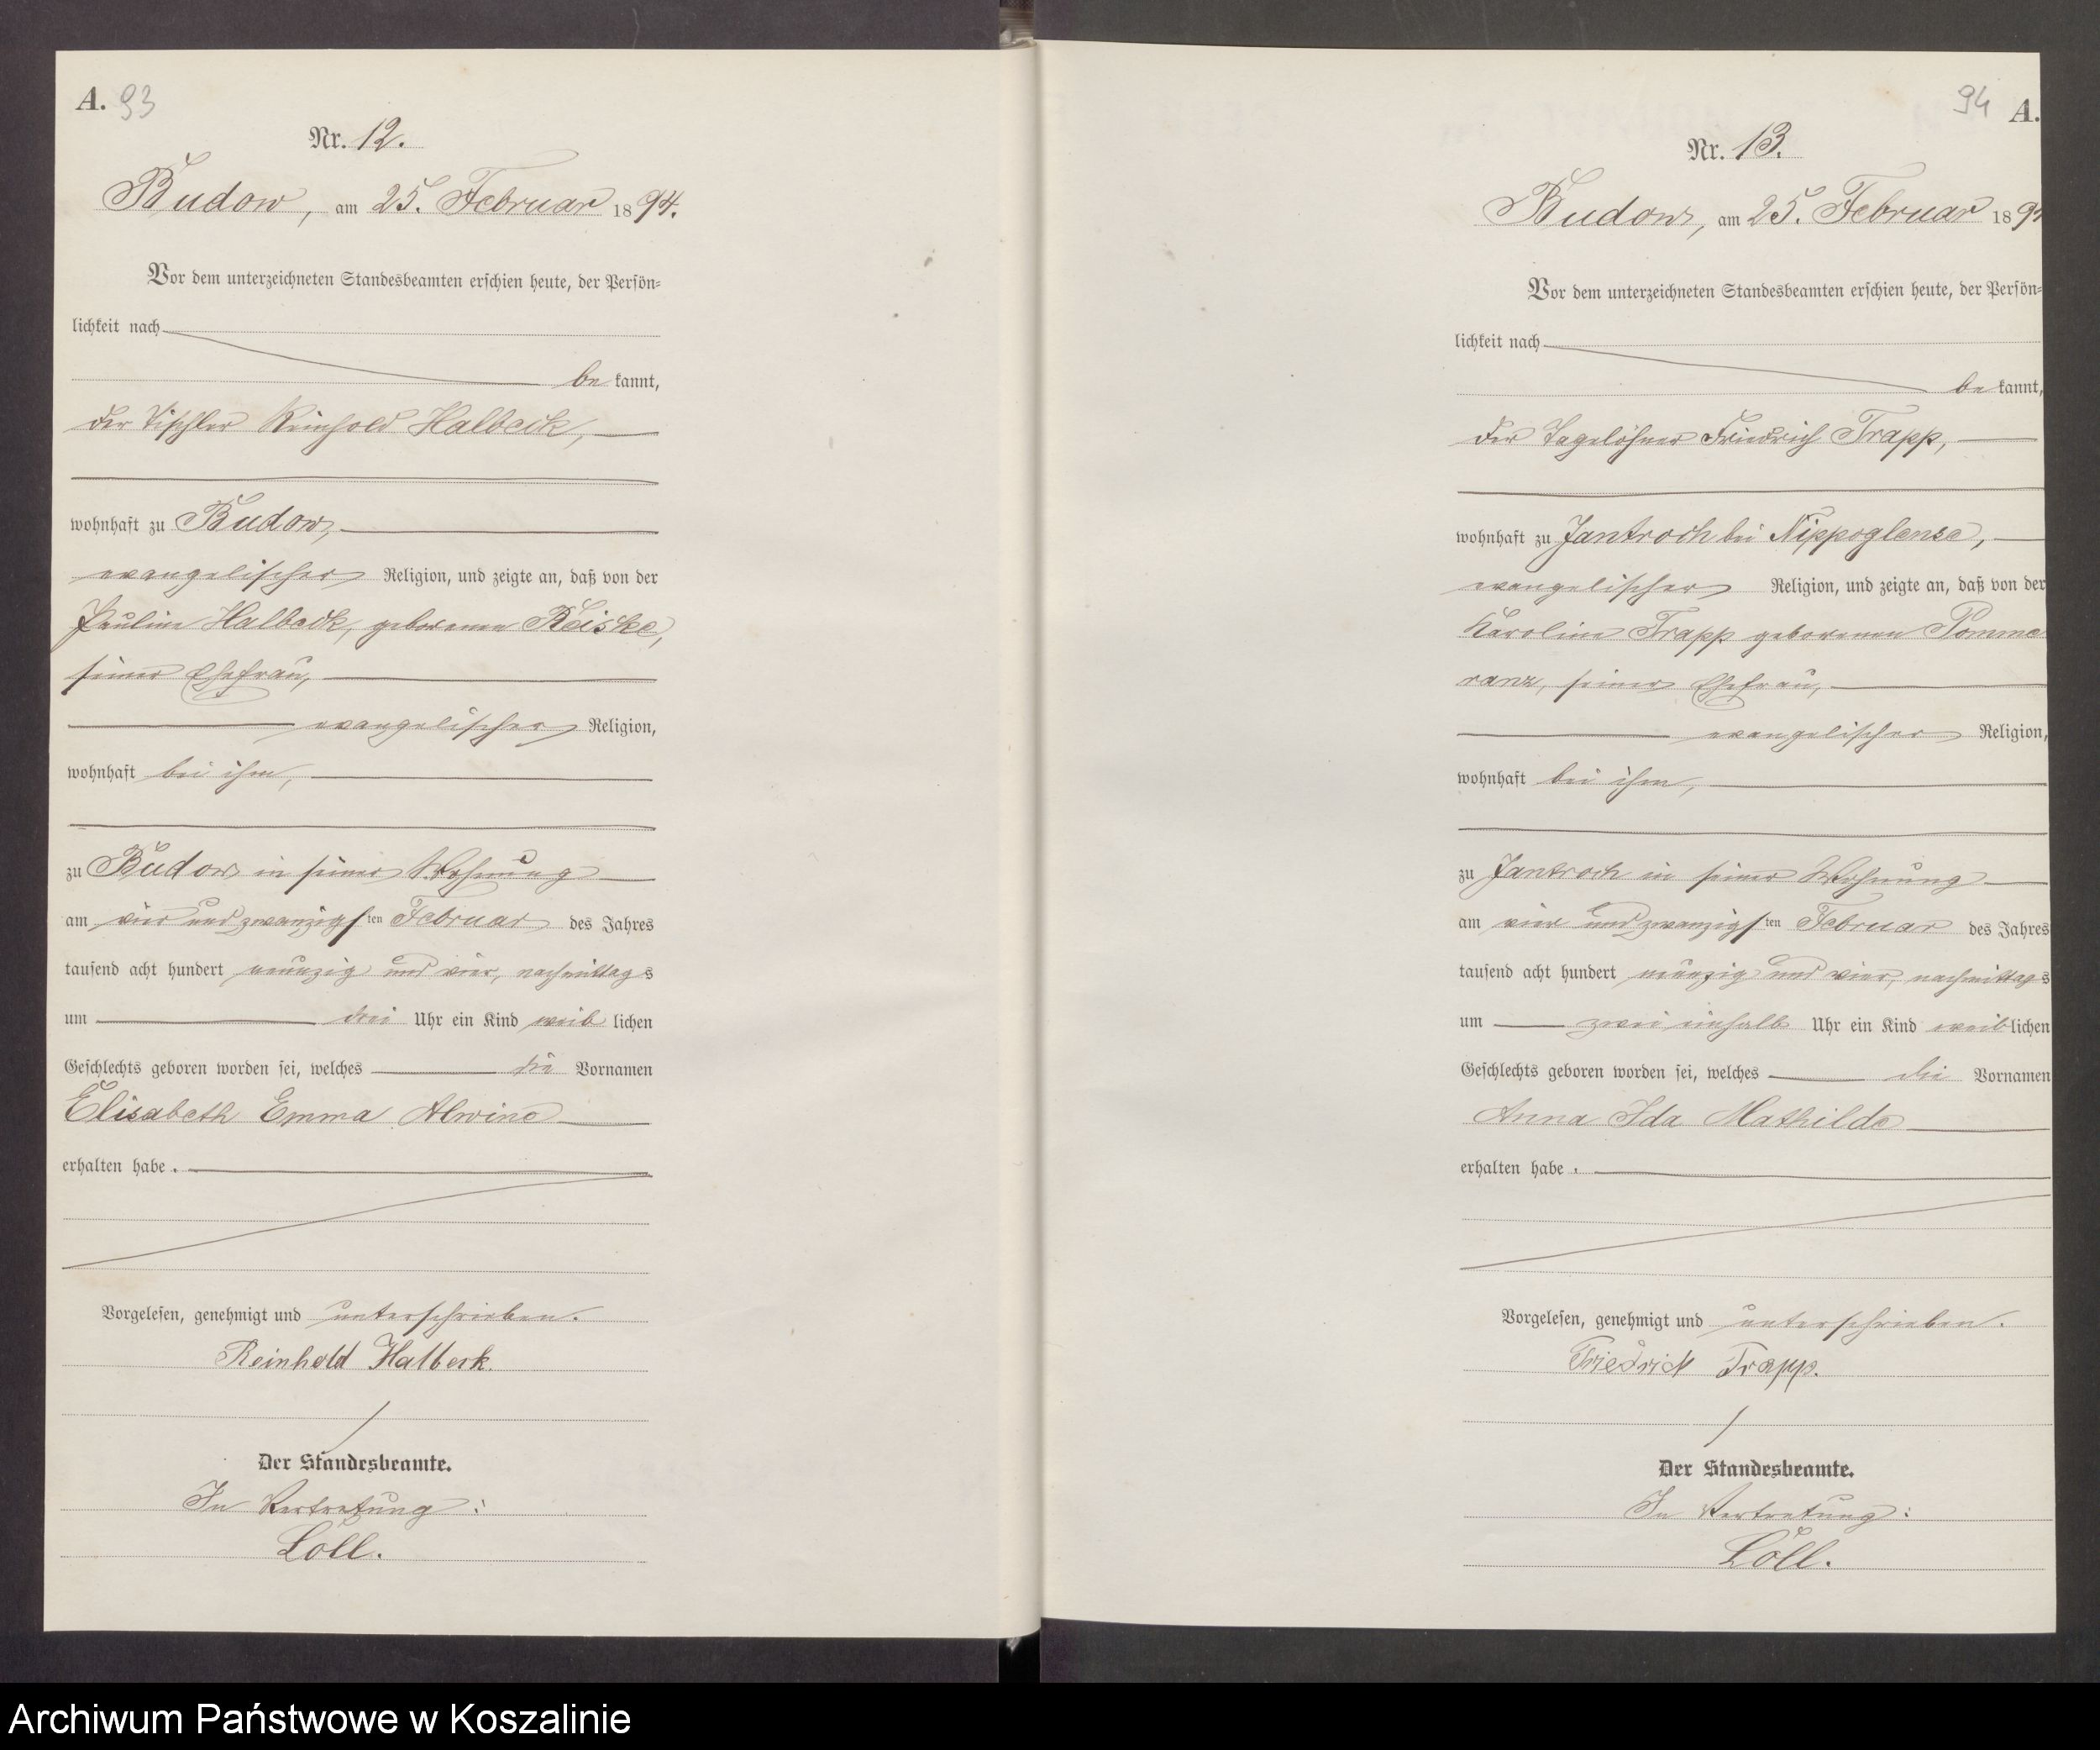 A. 93
Nr. 12.
Budow, am 25. Februar 1894.
Vor dem unterzeichneten Standesbeamten erschien heute, der Persön-
lichkeit nach
be kannt,
der Tischler Reinhold Halbeck,
wohnhaft zu Budow,
evangelischer Religion, und zeigte an, daß von der
Pauline Halbeck, geborenen Reiske,
seiner Ehefrau,
evangelischer Religion,
wohnhaft bei ihm,
zu Budow in seiner Wohnung
am vier und zwanzigsten Februar des Jahres
tausend acht hundert neunzig und vier, nachmittags
um drei Uhr ein Kind weib lichen
Geschlechts geboren worden sei, welches die Vornamen
Elisabeth Emma Alwine
erhalten habe.
Vorgelesen, genehmigt und unterschrieben.
Reinhold Halbeck.
Der Standesbeamte.
In Vertretung:
Löll.
94 A.
Nr. 13.
Budow, am 25. Februar 189
Vor dem unterzeichneten Standesbeamten erschien heute, der Persön-
lichkeit nach
be kannt,
der Tagelöhner Friedrich Trapp,
wohnhaft zu Jantroch bei Nippoglense,
evangelischer Religion, und zeigte an, daß von der
Karoline Trapp geborenen Pomme
ranz, seiner Ehefrau,
evangelischer Religion,
wohnhaft bei ihm,
zu Jantroch in seiner Wohnung
am vier und zwanzigsten Februar des Jahres
tausend acht hundert neunzig und vier, nachmittags
um zwei einhalb Uhr ein Kind weiblichen
Geschlechts geboren worden sei, welches die Vornamen
Anna Ida Mathilde
erhalten habe.
Vorgelesen, genehmigt und unterschrieben.
Friedrich Trapp.
Der Standesbeamte.
In Vertretung:
Löll.
Archiwum Państwowe w Koszalinie